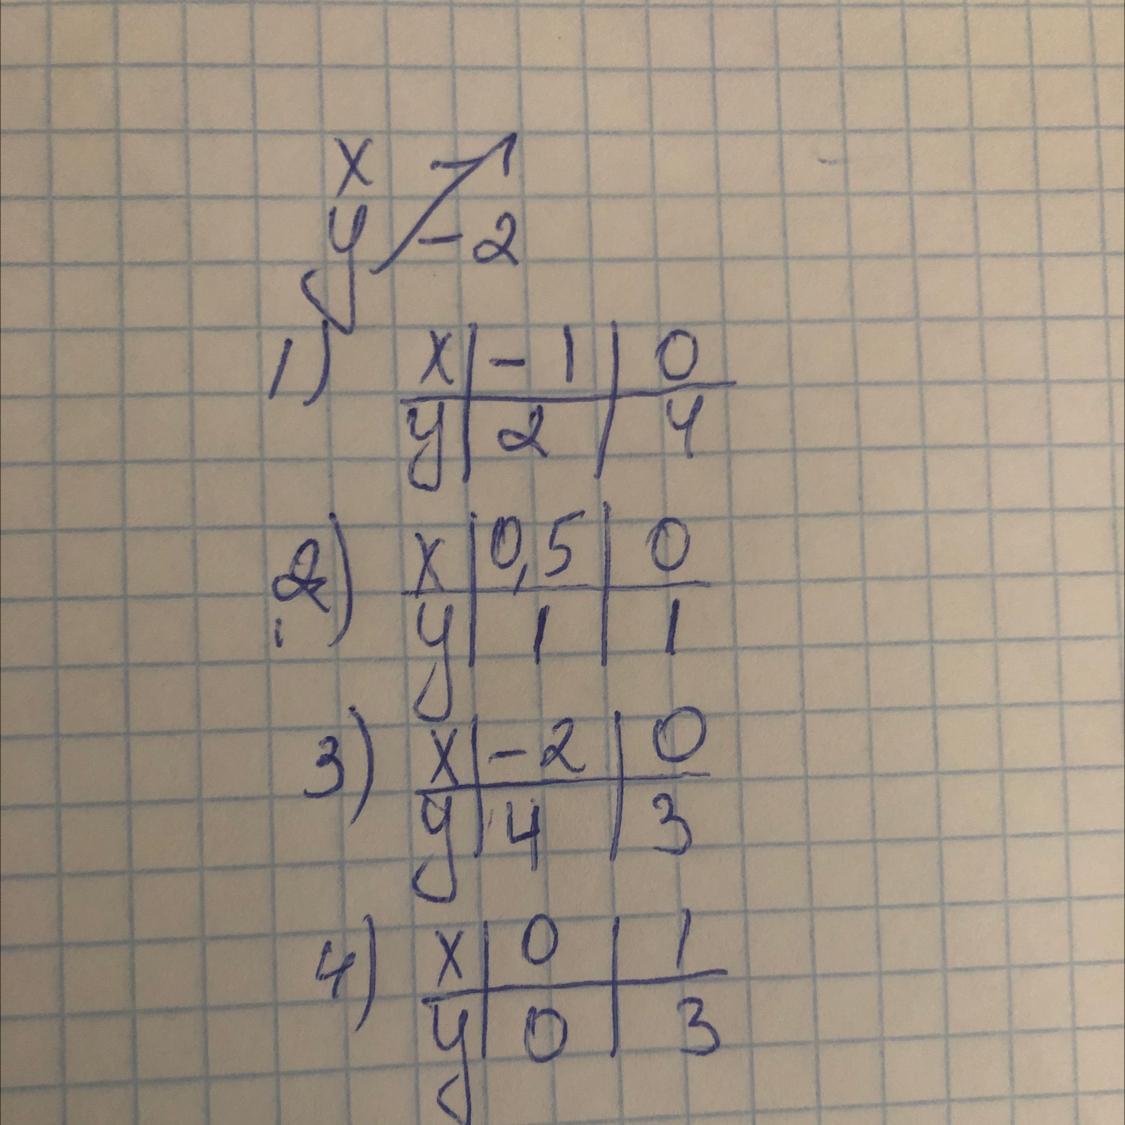 x -1
y -2
1) x | -1 | 0
y | 2 | 4
2) x | 0,5 | 0
y | 1 | 1
3) x | -2 | 0
y | 4 | 3
4) x | 0 | 1
y | 0 | 3